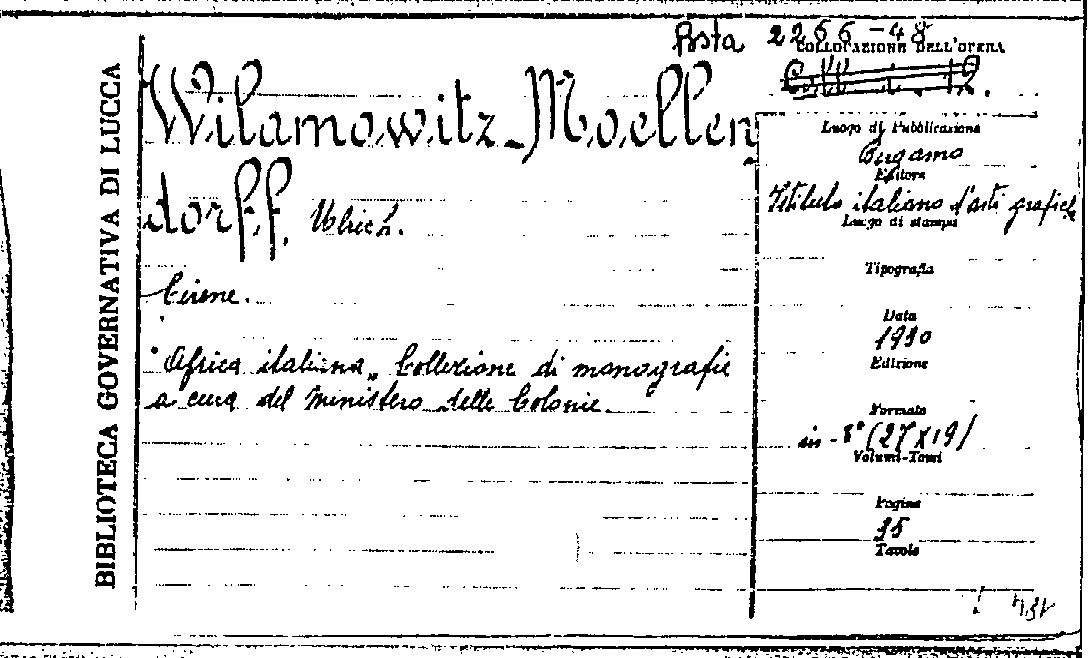 BIBLIOTECA GOVERNATIVA DI LUCCA
Busta 2266-48
COLLOCAZIONE DELL'OPERA
Wilamowitz-Moellen
dorff, Ulrich.
Cirene.
"Africa italiana„ Collezione di monografie
a cura del Ministero delle Colonie.
Luogo di Pubblicazione
Bergamo
Editore
Istituto italiano d'arti grafiche
Luogo di stampa
Tipografia
Data
1930
Edizione
Formato
in-8° (27x19)
Volumi-Tomi
Pagine
35
Tavole